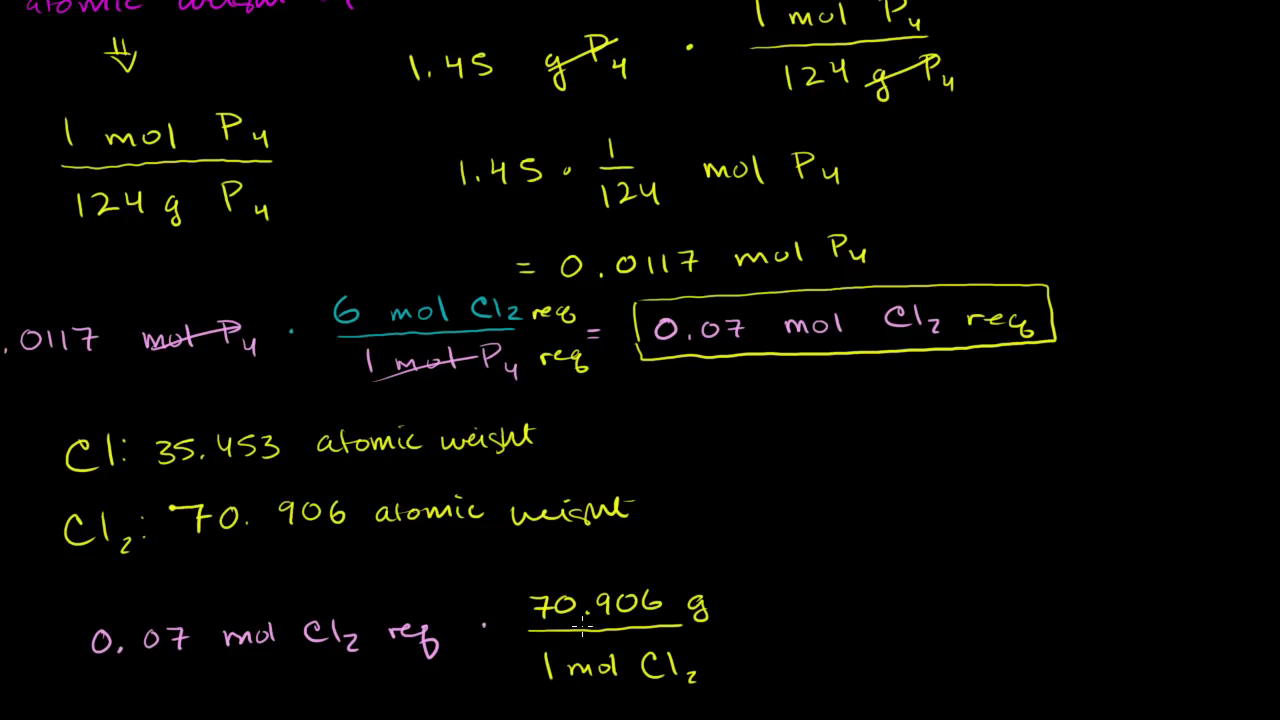 atomic weight of
⇓
1.45 g P₄ · 1 mol P₄ / 124 g P₄
1 mol P₄ / 124 g P₄
1.45 · 1/124 mol P₄
= 0.0117 mol P₄
.0117 mol P₄ · 6 mol Cl₂ req / 1 mol P₄ req = 0.07 mol Cl₂ req
Cl: 35.453 atomic weight
Cl₂: 70.906 atomic weight
0.07 mol Cl₂ req · 70.906 g / 1 mol Cl₂